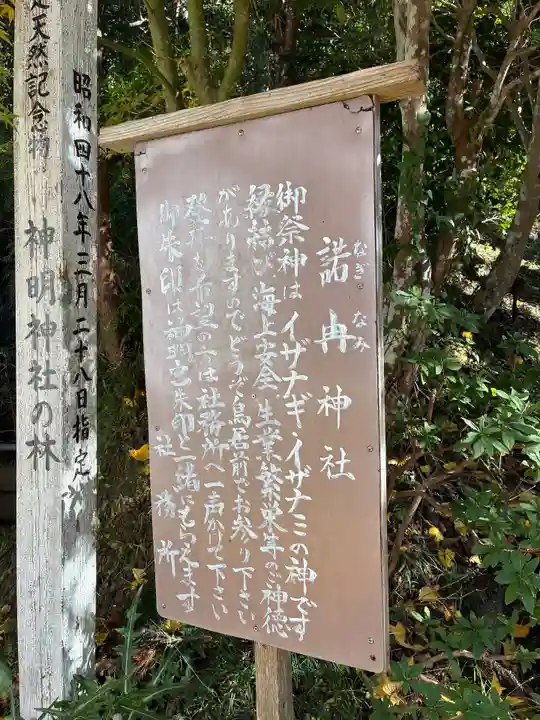 諾冉神社
なぎ なみ
御祭神はイザナギ、イザナミの神です
縁結び、海上安全、生業繁栄等のご神徳
がありますのでどうぞ鳥居前でお参り下さい
登拝を希望の方は社務所へ一声かけて下さい
御朱印は神明宮朱印と一緒にもらえます
社務所
昭和四十八年三月二十八日指定
天然記念物 神明神社の林